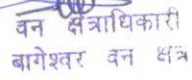 वन क्षेत्राधिकारी
बागेश्वर वन क्षेत्र